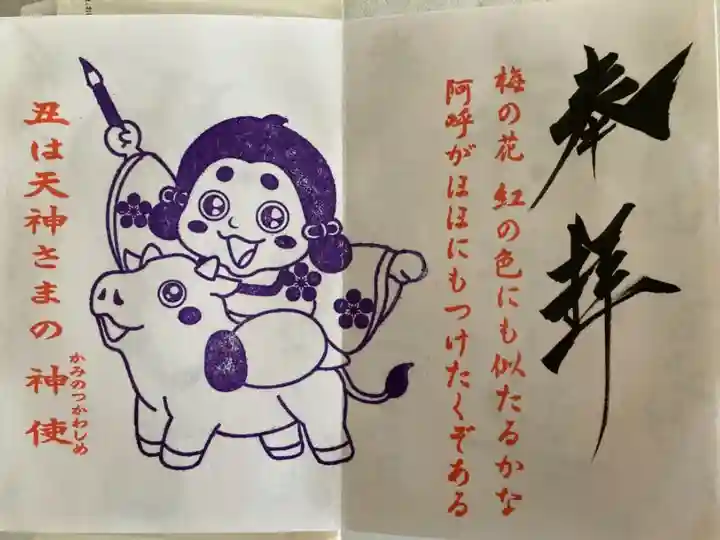 奉拝
梅の花 紅の色にも似たるかな
阿呼がほほにもつけたくぞある
丑は天神さまの神使
かみのつかわしめ